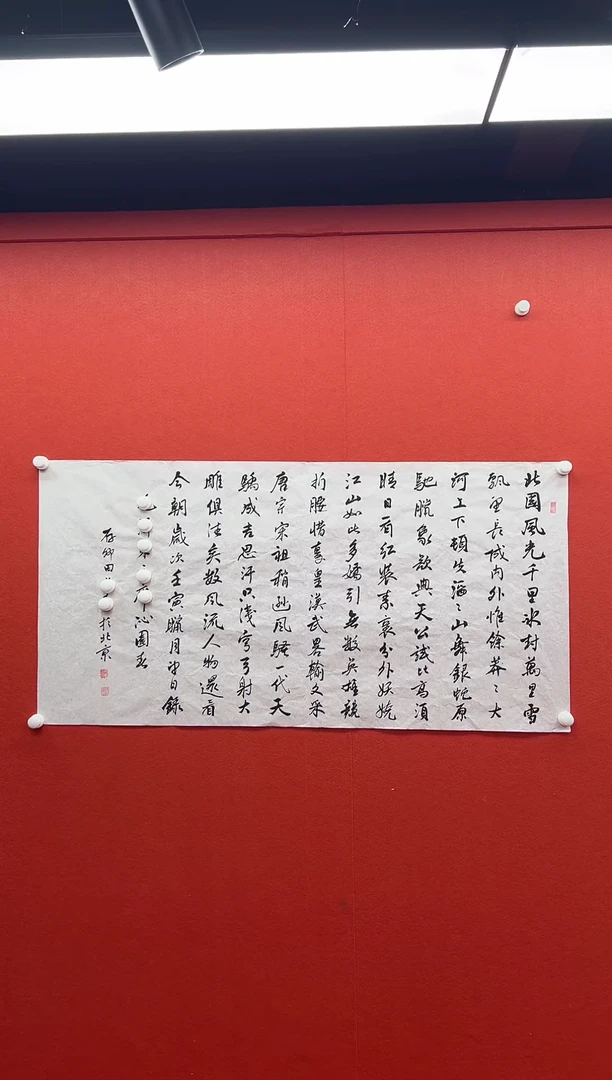 北国風光千里冰封萬里雪
飘望長城内外惟餘莽ミ大
河上下頓失滔ミ山舞銀蛇原
馳臘象欲與天公試比高須
晴日看红装素裹分外妖娆
江山如此多嬌引無數英雄競
折腰惜秦皇漢武畧輸文采
唐宗宋祖稍遜風騷一代天
驕成吉思汗只識弯弓射大
雕俱往矣数風流人物還看
今朝歲次壬寅臘月中日錄
沁園春
存鄉田
於北京